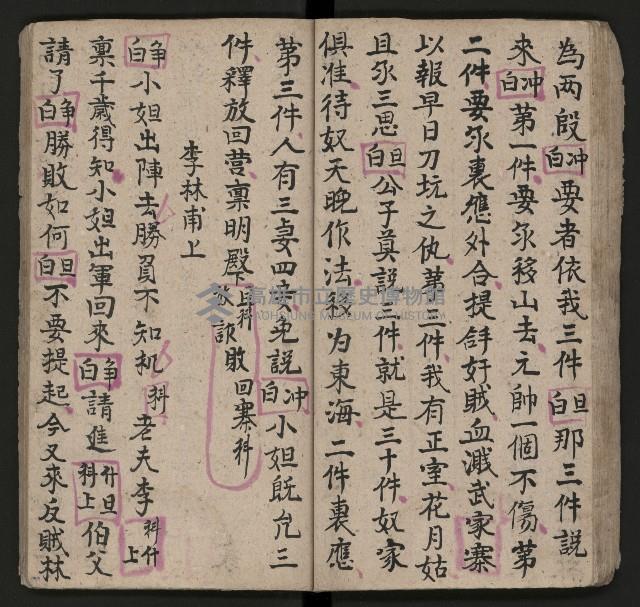 為两段冲白要者依我三件旦白那三件説
來冲白第一件要尔移山去元帥一個不傷第
二件要尔裏應外合提奸賊血濺武家寨
以報早日刀坑之仇第三件我有正室花月姑
且尔三思旦白公子莫説三件就是三十件奴家
俱准待奴天晚作法移为東海二件裏應
第三件人有三妻四妾免説冲白小姐既允三
件釋放回营稟明殿下科詐敗回寨科
李林甫上
争白小姐出陣去勝負不知机科老夫李科什上
稟千歲得知小姐出軍回來争白請進科上什旦伯父
請了争白勝敗如何旦白不要提起今又來反賊林
高雄市立歷史博物館
KAOHSIUNG MUSEUM OF HISTORY